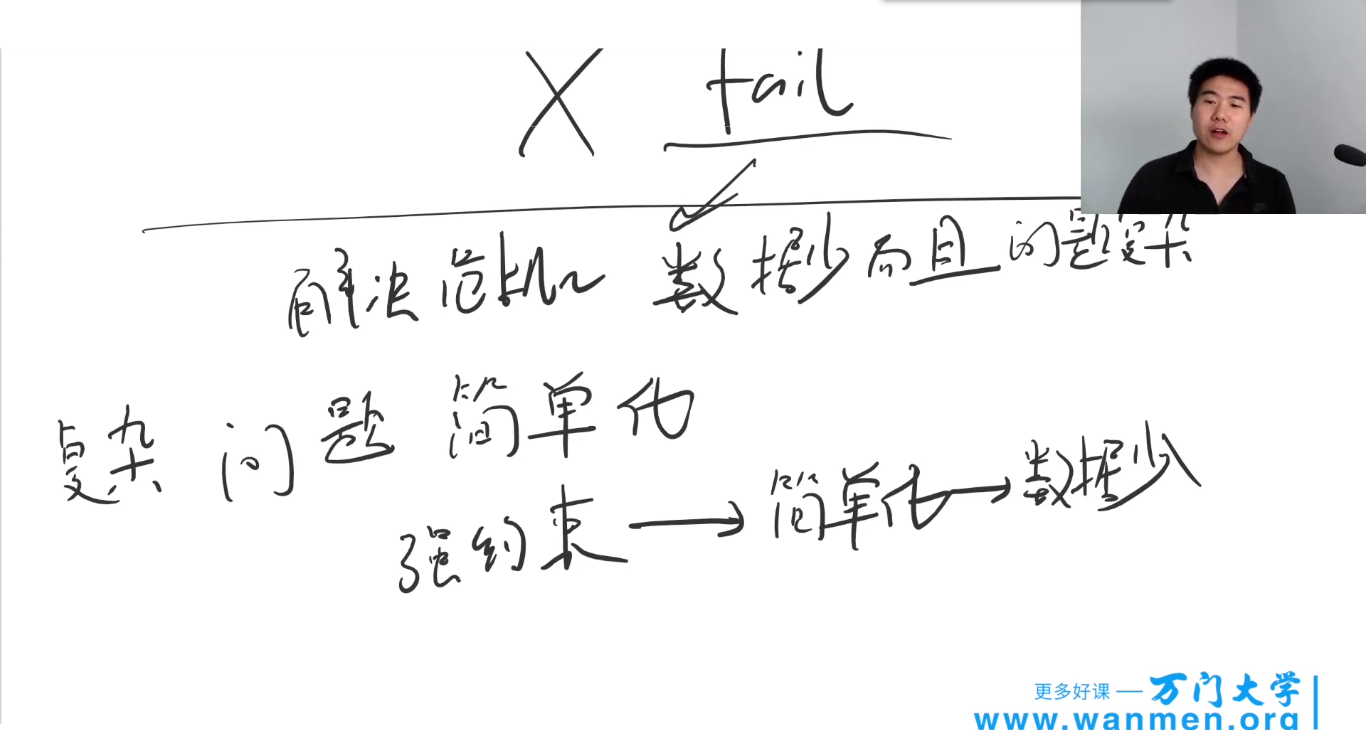 X fail
解决范畴 数据少而且问题复杂
复杂问题简单化
强约束→简单化→数据少
更多好课 — 万门大学
www.wanmen.org